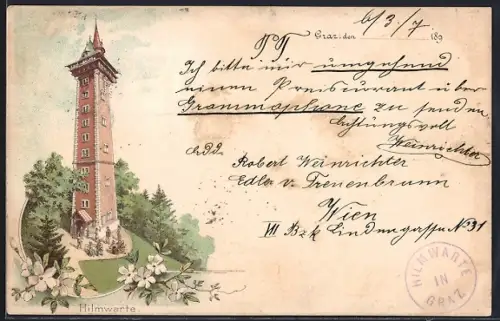 6/3/7
Graz, den 189
P T
Ich bitte mir umgehend
einen Preiscurrant über
Grammophone zu senden
Achtungsvoll
Weinrichter
Robert Weinrichter
Edler v. Treuenbrunn
Wien
VII Bzk Lindengasse No 31
HILMWARTE
IN
GRAZ
Hilmwarte.